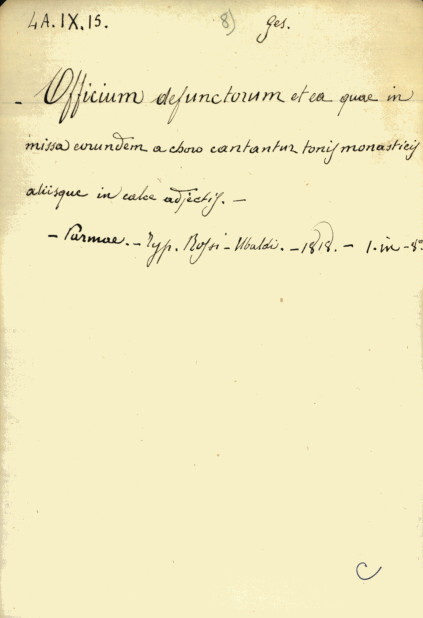 4A.IX.15. 8) ges.
- Officium defunctorum et ea quae in
missa eorundem a choro cantantur tonis monasticis
aliisque in calce adjectis. -
- Parmae. - Typ. Rossi-Ubaldi. - 1818. - 1. in-8°
C